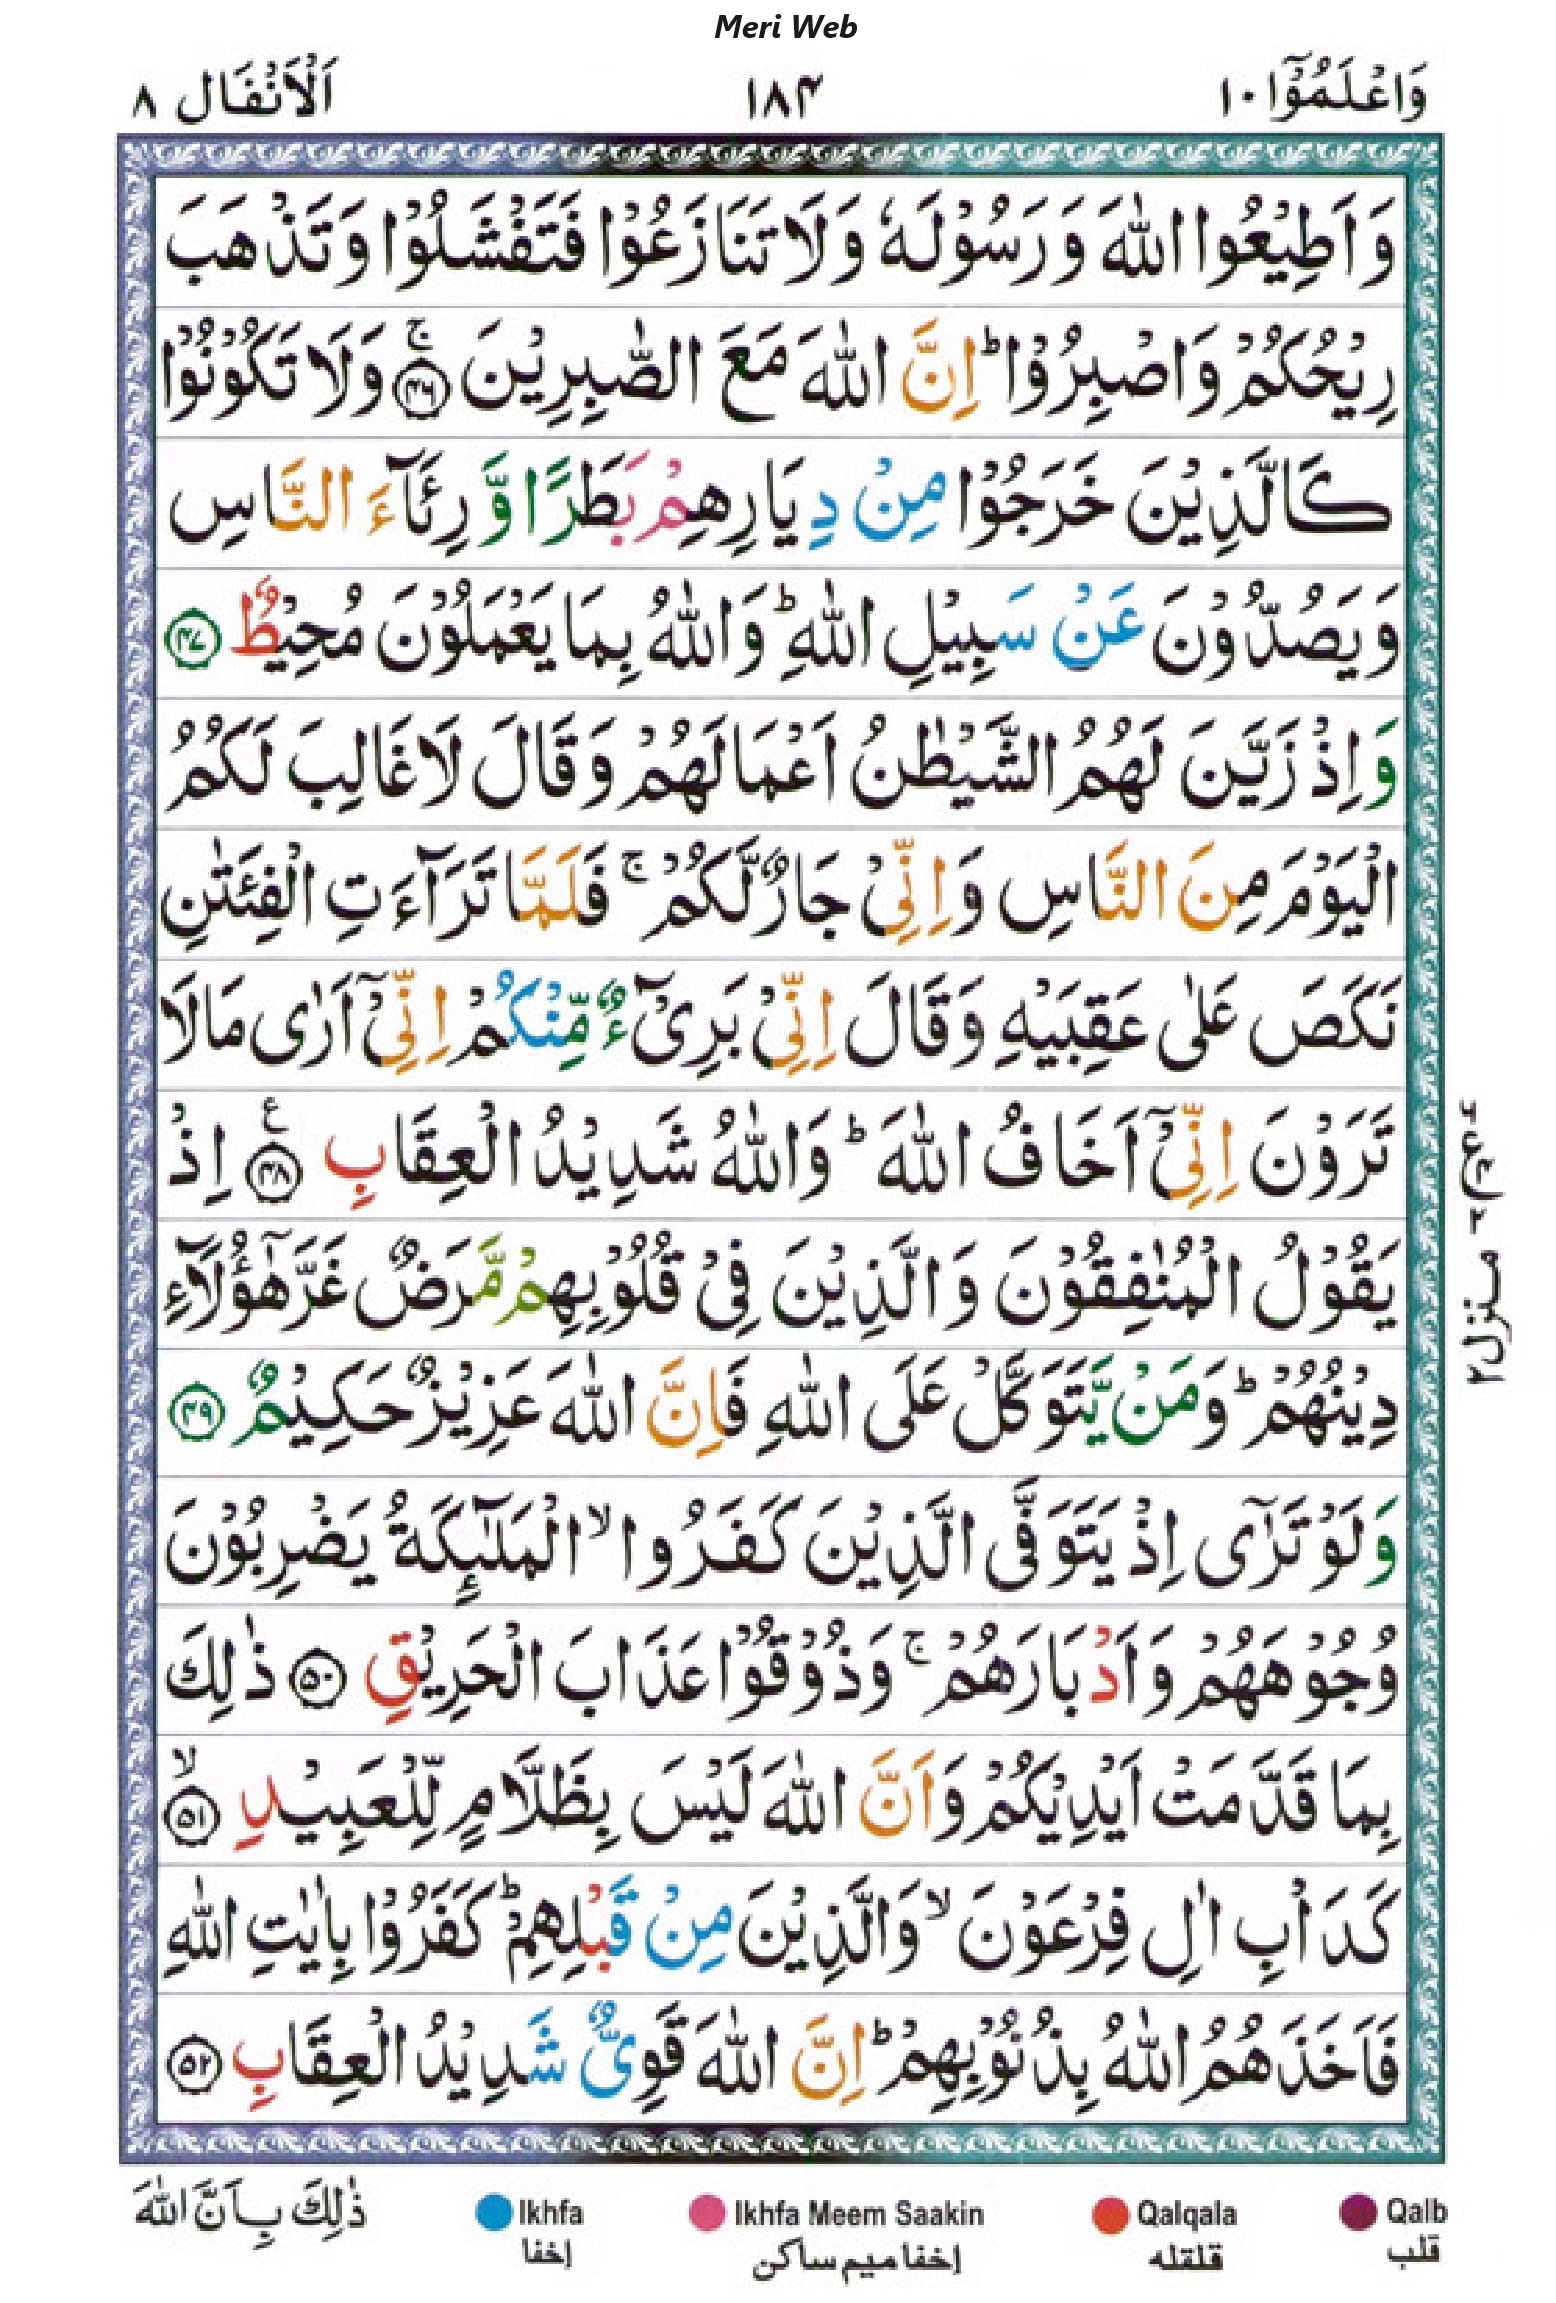 Meri Web
وَاعْلَمُوْٓا ١٠ ١٨٤ اَلْاَنْفَال ٨
وَاَطِيْعُوا اللّٰهَ وَرَسُوْلَهٗ وَلَا تَنَازَعُوْا فَتَفْشَلُوْا وَتَذْهَبَ
رِيْحُكُمْ وَاصْبِرُوْا ؕ اِنَّ اللّٰهَ مَعَ الصّٰبِرِيْنَ ۚ ﴿۴۶﴾ وَلَا تَكُوْنُوْا
كَالَّذِيْنَ خَرَجُوْا مِنْ دِيَارِهِمْ بَطَرًا وَّ رِئَآءَ النَّاسِ
وَيَصُدُّوْنَ عَنْ سَبِيْلِ اللّٰهِ ؕ وَاللّٰهُ بِمَا يَعْمَلُوْنَ مُحِيْطٌ ﴿۴۷﴾
وَاِذْ زَيَّنَ لَهُمُ الشَّيْطٰنُ اَعْمَالَهُمْ وَقَالَ لَا غَالِبَ لَكُمُ
الْيَوْمَ مِنَ النَّاسِ وَاِنِّيْ جَارٌ لَّكُمْ ۚ فَلَمَّا تَرَآءَتِ الْفِئَتٰنِ
نَكَصَ عَلٰى عَقِبَيْهِ وَقَالَ اِنِّيْ بَرِيْٓءٌ مِّنْكُمْ اِنِّيْٓ اَرٰى مَا لَا
تَرَوْنَ اِنِّيْٓ اَخَافُ اللّٰهَ ؕ وَاللّٰهُ شَدِيْدُ الْعِقَابِ ﴿۴۸﴾ ع اِذْ
يَقُوْلُ الْمُنٰفِقُوْنَ وَالَّذِيْنَ فِيْ قُلُوْبِهِمْ مَّرَضٌ غَرَّ هٰٓؤُلَآءِ
دِيْنُهُمْ ؕ وَمَنْ يَّتَوَكَّلْ عَلَى اللّٰهِ فَاِنَّ اللّٰهَ عَزِيْزٌ حَكِيْمٌ ﴿۴۹﴾
وَلَوْ تَرٰٓى اِذْ يَتَوَفَّى الَّذِيْنَ كَفَرُوا ۙ الْمَلٰٓئِكَةُ يَضْرِبُوْنَ
وُجُوْهَهُمْ وَاَدْبَارَهُمْ ۚ وَذُوْقُوْا عَذَابَ الْحَرِيْقِ ﴿۵۰﴾ ذٰلِكَ
بِمَا قَدَّمَتْ اَيْدِيْكُمْ وَاَنَّ اللّٰهَ لَيْسَ بِظَلَّامٍ لِّلْعَبِيْدِ ۙ ﴿۵۱﴾
كَدَاْبِ اٰلِ فِرْعَوْنَ ۙ وَالَّذِيْنَ مِنْ قَبْلِهِمْ ؕ كَفَرُوْا بِاٰيٰتِ اللّٰهِ
فَاَخَذَهُمُ اللّٰهُ بِذُنُوْبِهِمْ ؕ اِنَّ اللّٰهَ قَوِيٌّ شَدِيْدُ الْعِقَابِ ﴿۵۲﴾
منزل ٢
ذٰلِكَ بِاَنَّ اللّٰهَ
Ikhfa
إخفا
Ikhfa Meem Saakin
إخفا ميم ساكن
Qalqala
قلقله
Qalb
قلب